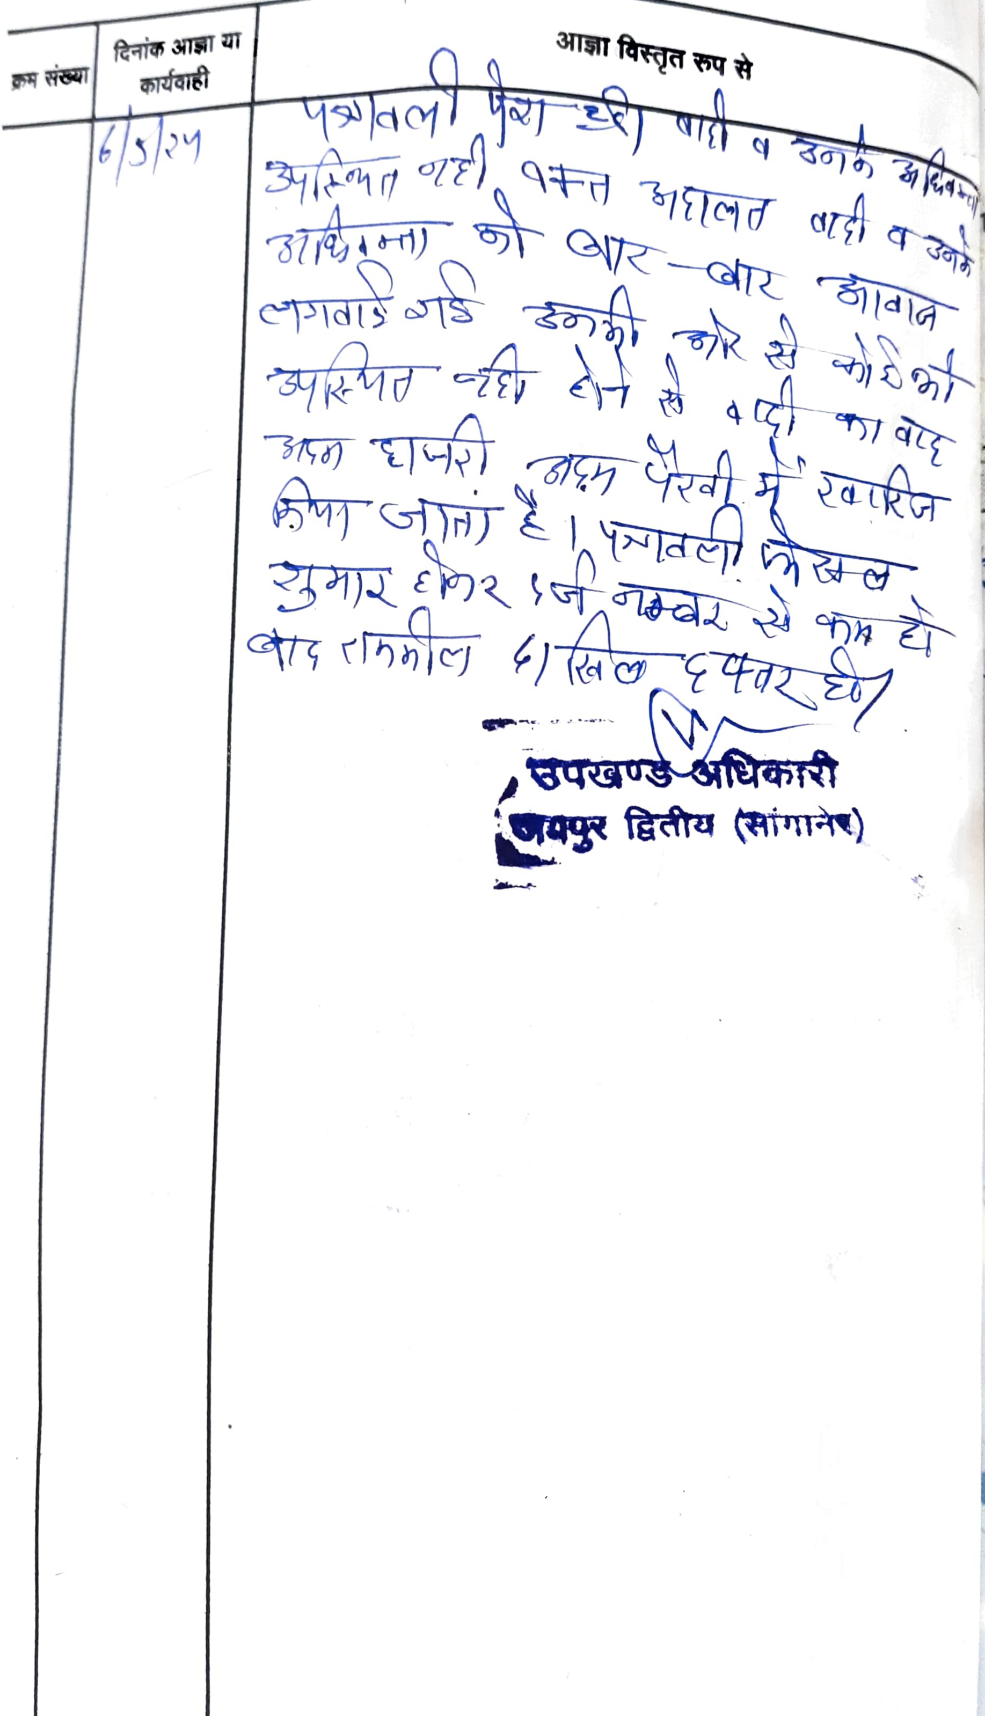 क्रम संख्या
दिनांक आज्ञा या
कार्यवाही
आज्ञा विस्तृत रूप से
6/5/24
पत्रावली पेश हुई। वादी व उनके अधिवक्ता
उपस्थित नही वक्त अदालत वादी व उनके
अधिवक्ता को बार-बार आवाज
लगवाई गई उनकी ओर से कोई भी
उपस्थित नही होने से वादी का वाद
अदम हाजरी अदम पैरवी में खारिज
किया जाता है। पत्रावली फैसल
शुमार होकर दर्ज नम्बर से कम हो
बाद तकमील दाखिल दफ्तर हो।
उपखण्ड अधिकारी
जयपुर द्वितीय (सांगानेर)